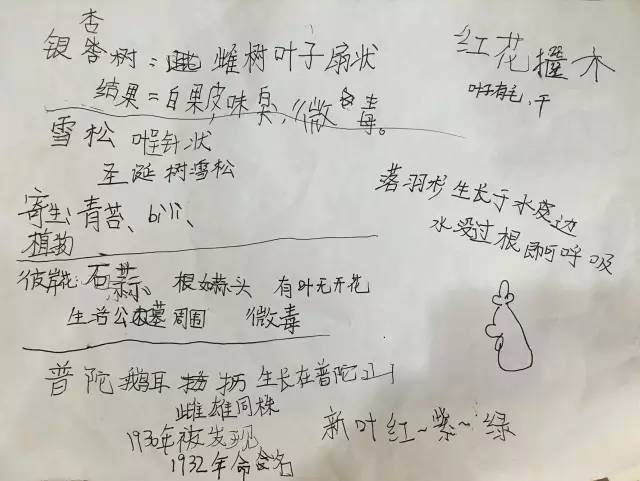 杏
银杏树：雌树叶子扇状
结果=白果，皮味臭，微毒。
雪松 叶呈针状
圣诞树雪松
寄生：青苔、bili、
植物
彼岸花：石蒜、根如蒜头 有叶无开花
生活公墓周围 微毒
普陀鹅耳 生长在普陀山
雌雄同株
1930年被发现
1932年命名
红花擢木
叶子有毛，干
落羽杉生长于水皮边
水没过根即可呼吸
新叶红~紫~绿